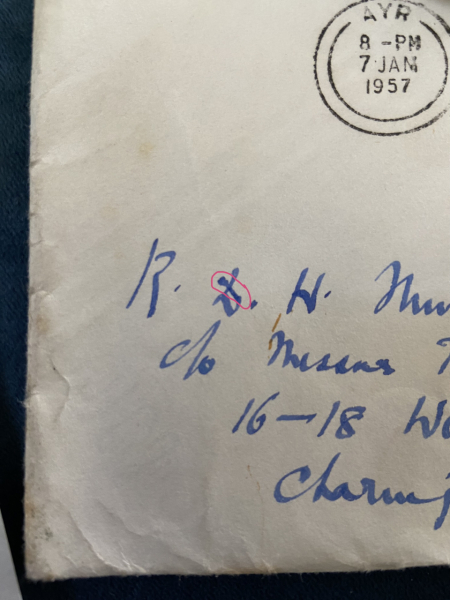 AYR
8 - PM
7 JAN
1957
R. D. H.
c/o Messrs
16-18
Charing